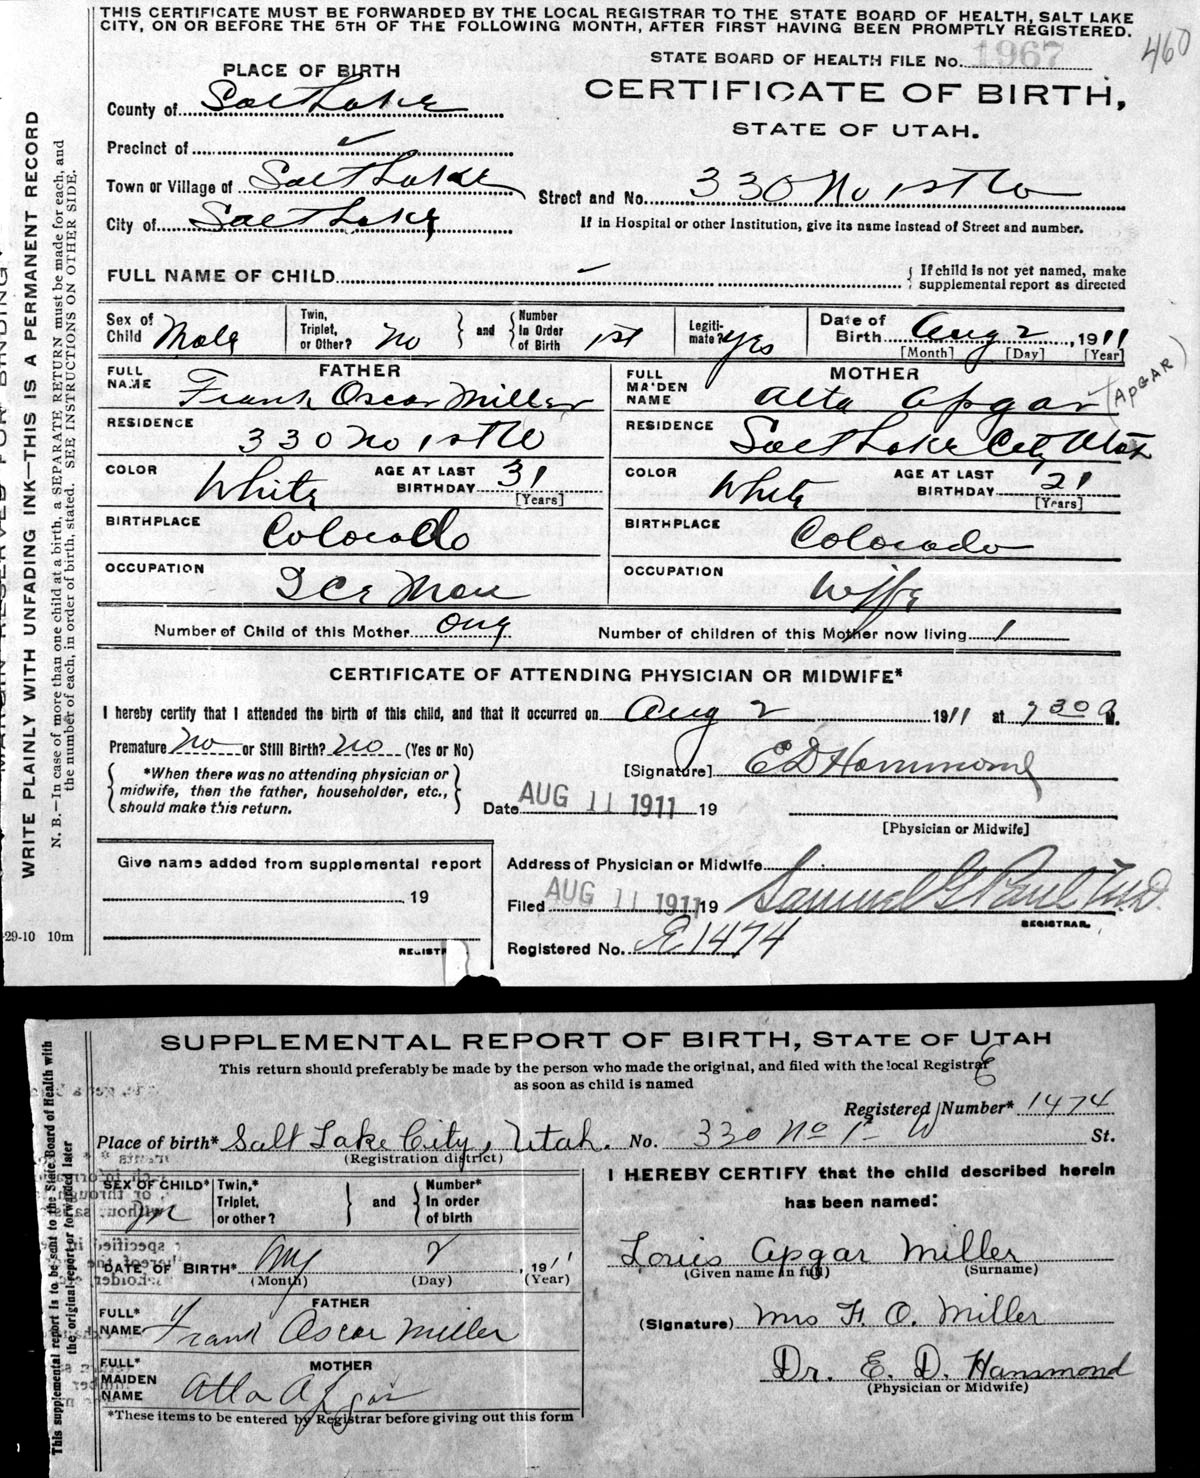 THIS CERTIFICATE MUST BE FORWARDED BY THE LOCAL REGISTRAR TO THE STATE BOARD OF HEALTH, SALT LAKE
CITY, ON OR BEFORE THE 5TH OF THE FOLLOWING MONTH, AFTER FIRST HAVING BEEN PROMPTLY REGISTERED.
460
STATE BOARD OF HEALTH FILE No. 1967
PLACE OF BIRTH
CERTIFICATE OF BIRTH,
STATE OF UTAH.
County of Salt Lake
Precinct of ✓
Town or Village of Salt Lake
Street and No. 330 No 1st W
City of Salt Lake
If in Hospital or other Institution, give its name instead of Street and number.
FULL NAME OF CHILD ✓ { If child is not yet named, make
supplemental report as directed
Sex of Child Male
Twin, Triplet, or Other? No } and { Number in Order of Birth 1st
Legitimate? Yes
Date of Birth Aug 2, 1911
[Month] [Day] [Year]
FATHER
FULL NAME Frank Oscar Miller
RESIDENCE 330 No 1st W
COLOR White AGE AT LAST BIRTHDAY 31 [Years]
BIRTHPLACE Colorado
OCCUPATION Ice Man
MOTHER
FULL MAIDEN NAME Alta Apgar (APGAR)
RESIDENCE Salt Lake City Utah
COLOR White AGE AT LAST BIRTHDAY 21 [Years]
BIRTHPLACE Colorado
OCCUPATION Wife
Number of Child of this Mother One Number of children of this Mother now living 1
CERTIFICATE OF ATTENDING PHYSICIAN OR MIDWIFE*
I hereby certify that I attended the birth of this child, and that it occurred on Aug 2 1911 at 7 30 a M.
Premature No or Still Birth? No (Yes or No)
{ *When there was no attending physician or
midwife, then the father, householder, etc.,
should make this return. }
[Signature] E D Hammond
Date AUG 11 1911 19
[Physician or Midwife]
Give name added from supplemental report
19
REGISTR
Address of Physician or Midwife
Filed AUG 11 1911 19 Samuel G. Paul M.D.
REGISTRAR.
Registered No. E1474
29-10 10m
MARGIN RESERVED FOR BINDING
WRITE PLAINLY WITH UNFADING INK—THIS IS A PERMANENT RECORD
N. B.—In case of more than one child at a birth, a SEPARATE RETURN must be made for each, and
the number of each, in order of birth, stated. SEE INSTRUCTIONS ON OTHER SIDE.
SUPPLEMENTAL REPORT OF BIRTH, STATE OF UTAH
This return should preferably be made by the person who made the original, and filed with the local Registrar
as soon as child is named
E
Registered Number* 1474
Place of birth* Salt Lake City, Utah. No. 330 No 1st W St.
(Registration district)
SEX OF CHILD* M
Twin,* Triplet, or other? } and { Number* In order of birth
DATE OF BIRTH* Aug 2, 1911
(Month) (Day) (Year)
FATHER
FULL* NAME Frank Oscar Miller
MOTHER
FULL* MAIDEN NAME Alta Apgar
*These items to be entered by Registrar before giving out this form
I HEREBY CERTIFY that the child described herein
has been named:
Louis Apgar Miller
(Given name in full) (Surname)
(Signature) Mrs F. O. Miller
Dr. E. D. Hammond
(Physician or Midwife)
This supplemental report is to be sent to the State Board of Health with
the original report or forwarded later